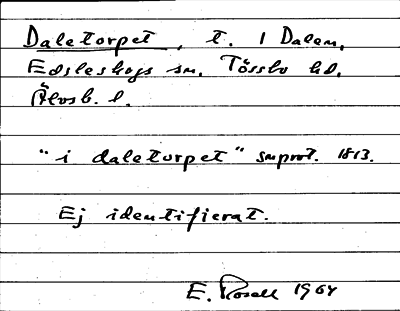 Daletorpet, t. 1 Dalen,
Edsleskogs sn. Tössbo hd.
Älvsb. l.
"i daletorpet" smprot. 1813.
Ej identifierat.
E. Rosell 1964